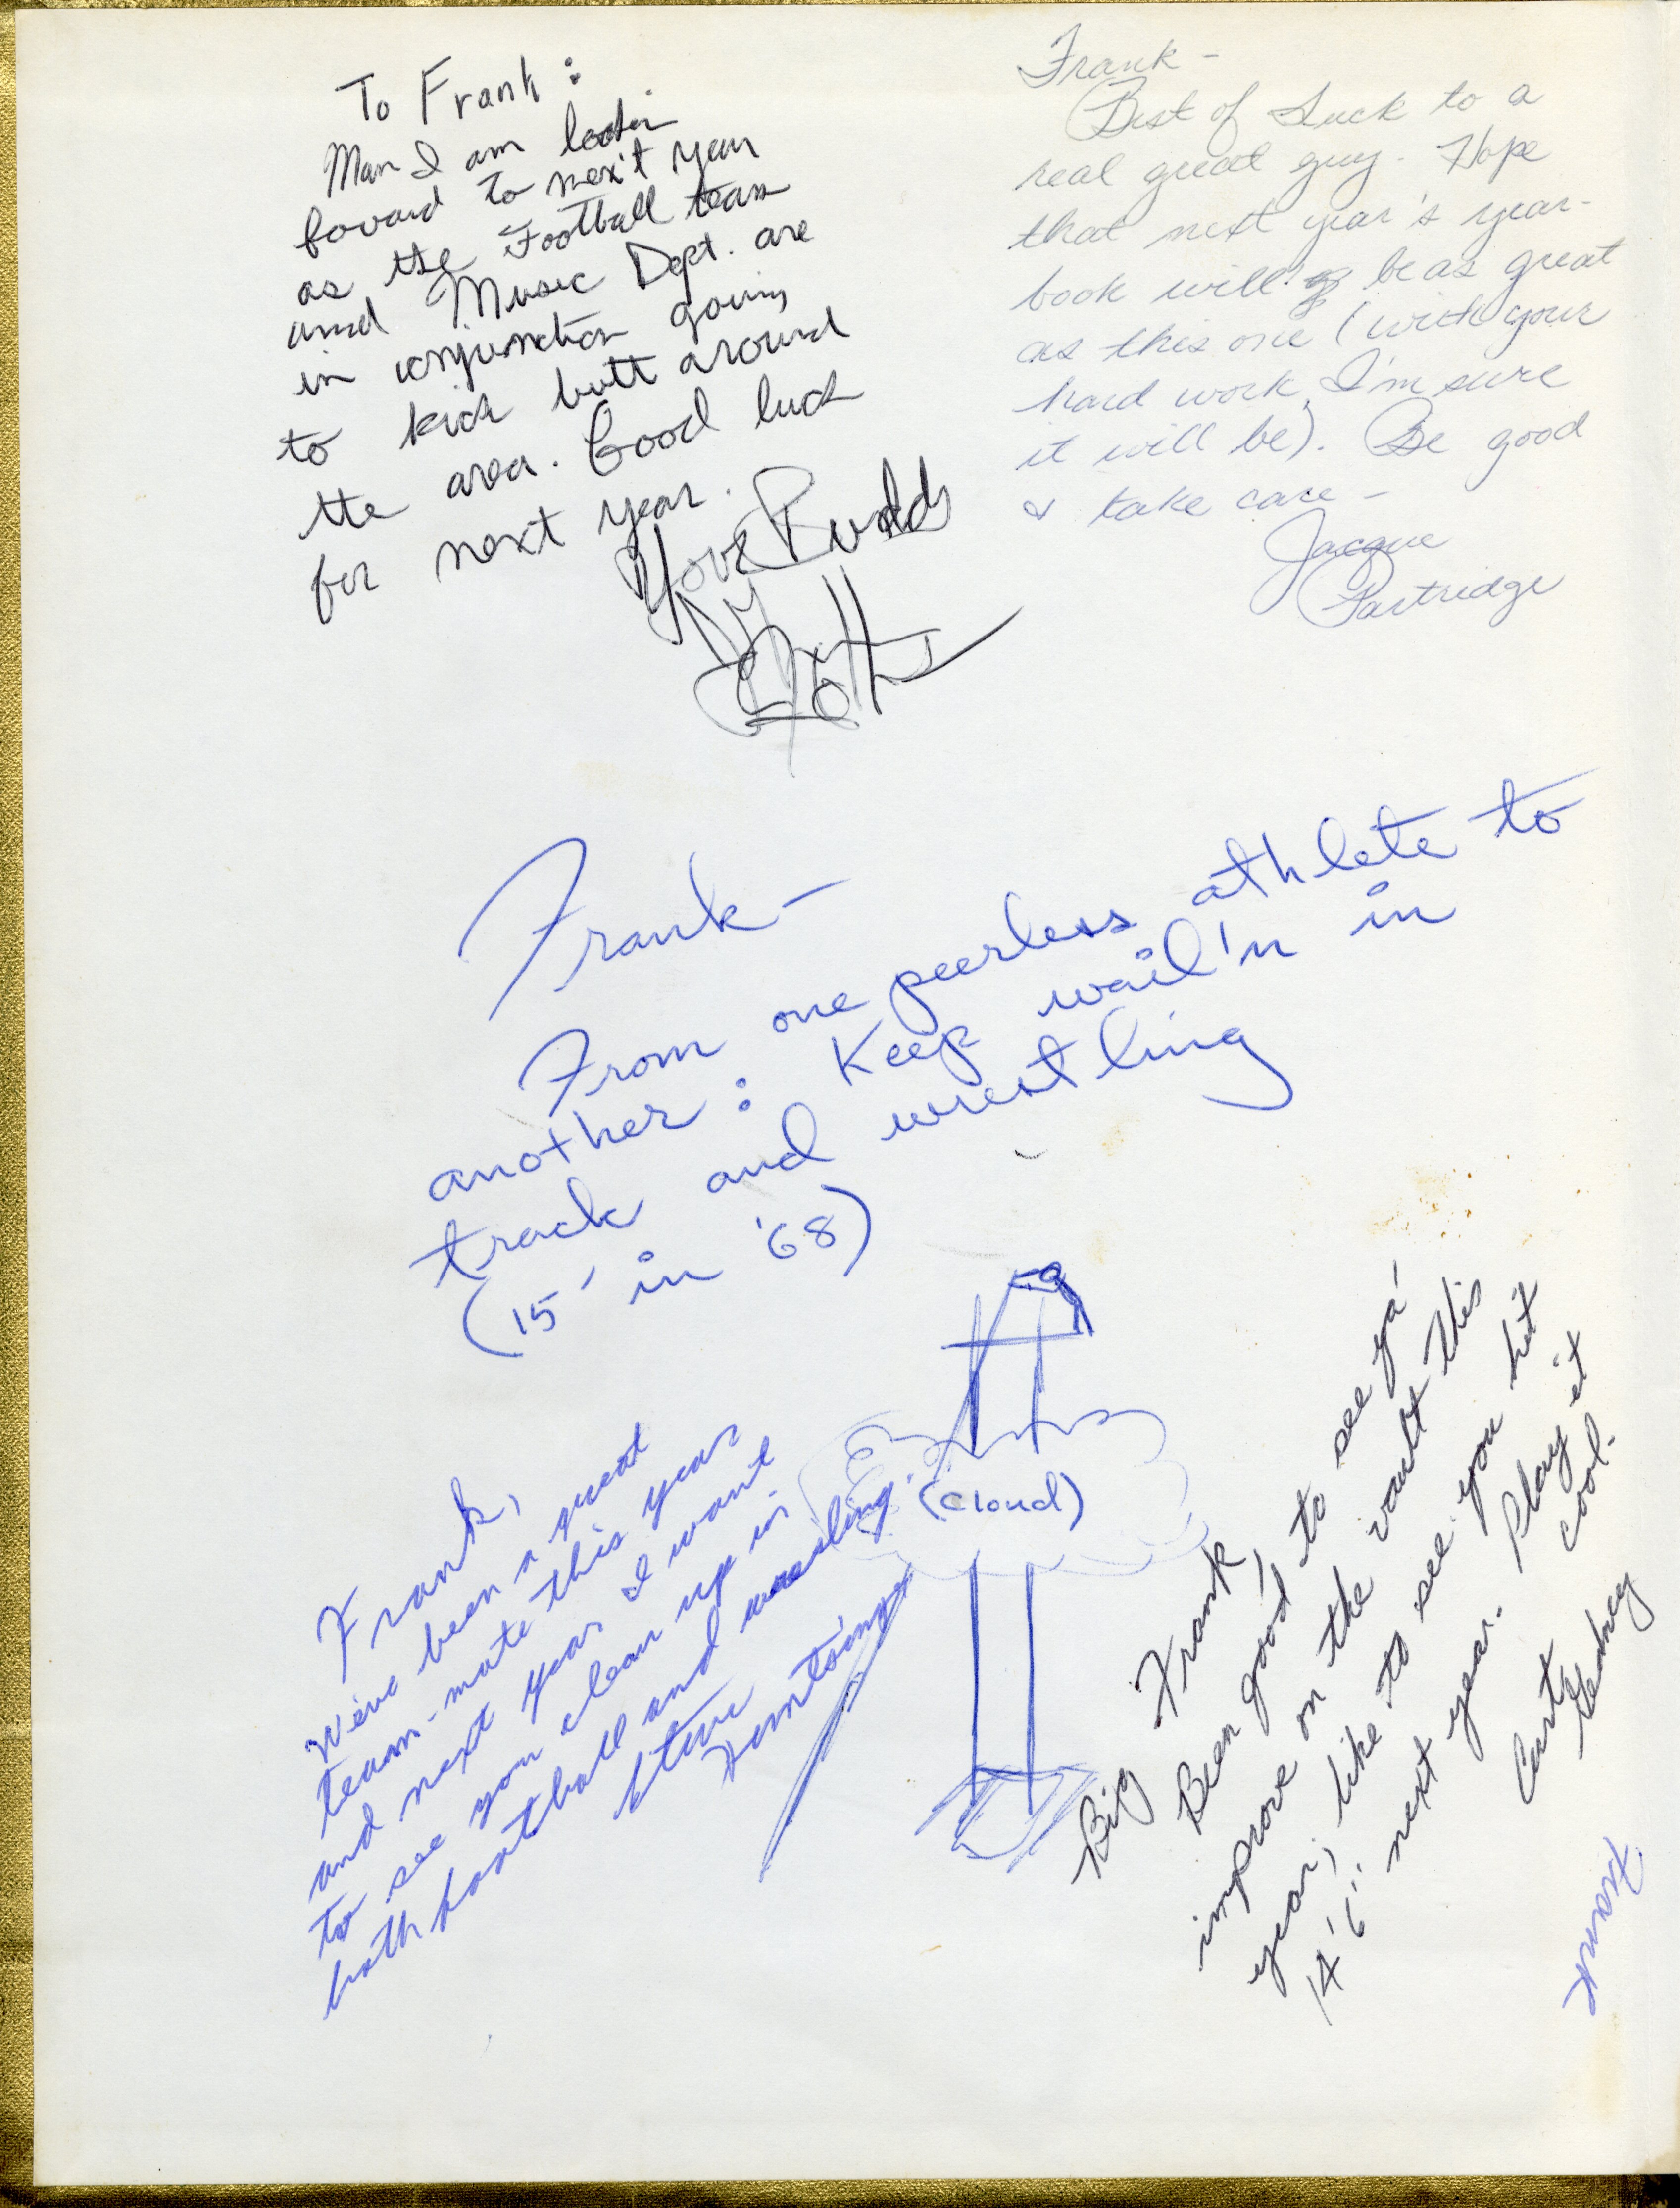 To Frank:
Man I am lookin
foward to nex't year
as the Football team
and Music Dept. are
in conjunction going
to kick butt around
the area. Good luck
for next year.
Your Buddy
Frank-
Best of Luck to a
real great guy. Hope
that next year's year-
book will be as great
as this one (with your
hard work, I'm sure
it will be). Be good
& take care-
Jacque
Partridge
Frank-
From one peerless athlete to
another: Keep wail'n in
track and wrestling
(15' in '68)
(cloud)
Frank,
We've been a great
team-mate this year
and next year I want
to see you clean up in
both football and wrestling.
Steve
Big Frank,
Been good to see ya'
improve on the vault this
year, like to see you hit
14'6" next year. Play it
cool.
Curt
Gedney
Frank